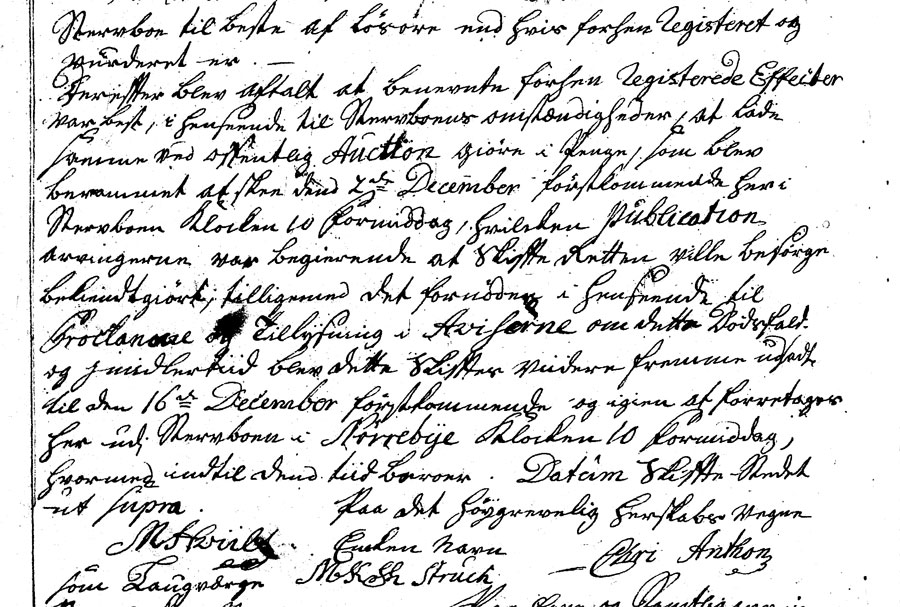 Sterwboe til beste af Lösöre end hvis forhen Registeret og
vurderet er. —
Derefter blev aftalt at benevnte forhen Registerede Effecter
var best, i henseende til Sterwboens omstændigheder, at lade
samme ved offentlig Auction giöre i Penge, som blev
berammet at skee dend 2de December förstkommende her i
Sterwboen Klocken 10 Formiddag, hvilcken Publication
arvingerne var begierende at Skifte Retten ville besörge
bekiendtgiört, tilligemed det fornöden i henseende til
Proclamae og Tillysning i Aviserne om dette Dödsfald.
og imidlertiid blev dette Skiftes videre fremme udsadt
til den 16de December förstkommende og igien at foretages
her udj Sterwboen i Nörrebÿe Klocken 10 Formiddag,
hvormed indtil dend tiid beroer. Datum Skifte-Stedet
ut supra. Paa det höygrevelig Herskabs Vegne
Enken Navn Chri Anthon
som Laugværge Struch